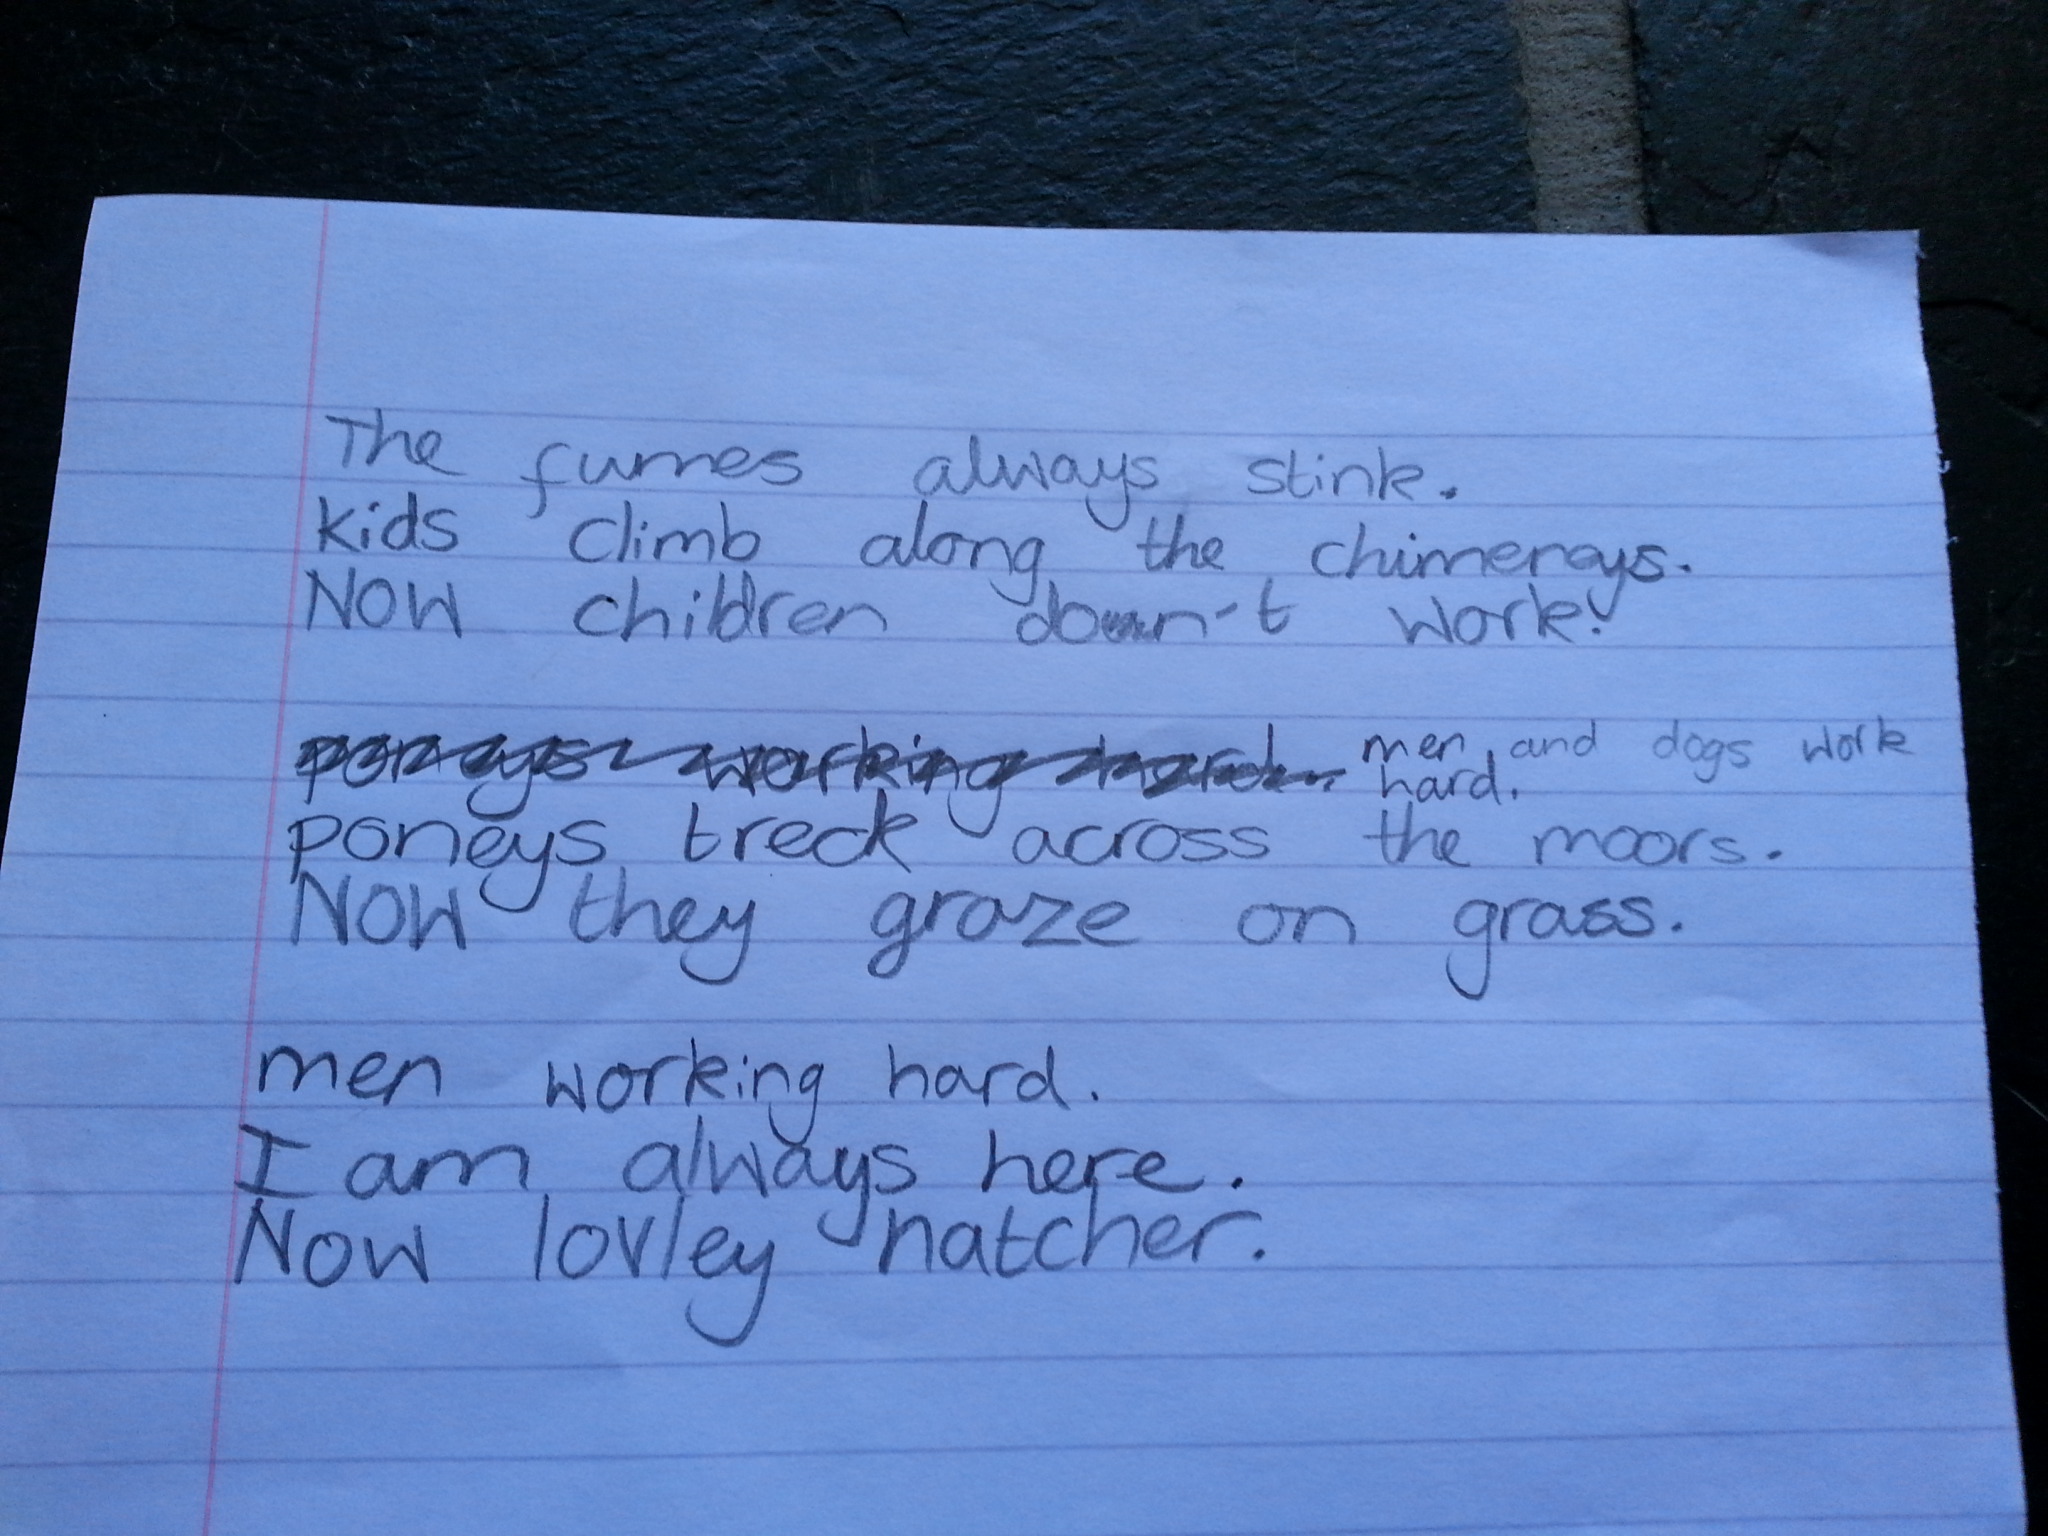 The fumes always stink.
kids climb along the chimereys.
NOW children don't work!
poneys working hard. men and dogs work
hard.
poneys treck across the moors.
NOW they graze on grass.
men working hard.
I am always here.
Now lovley natcher.